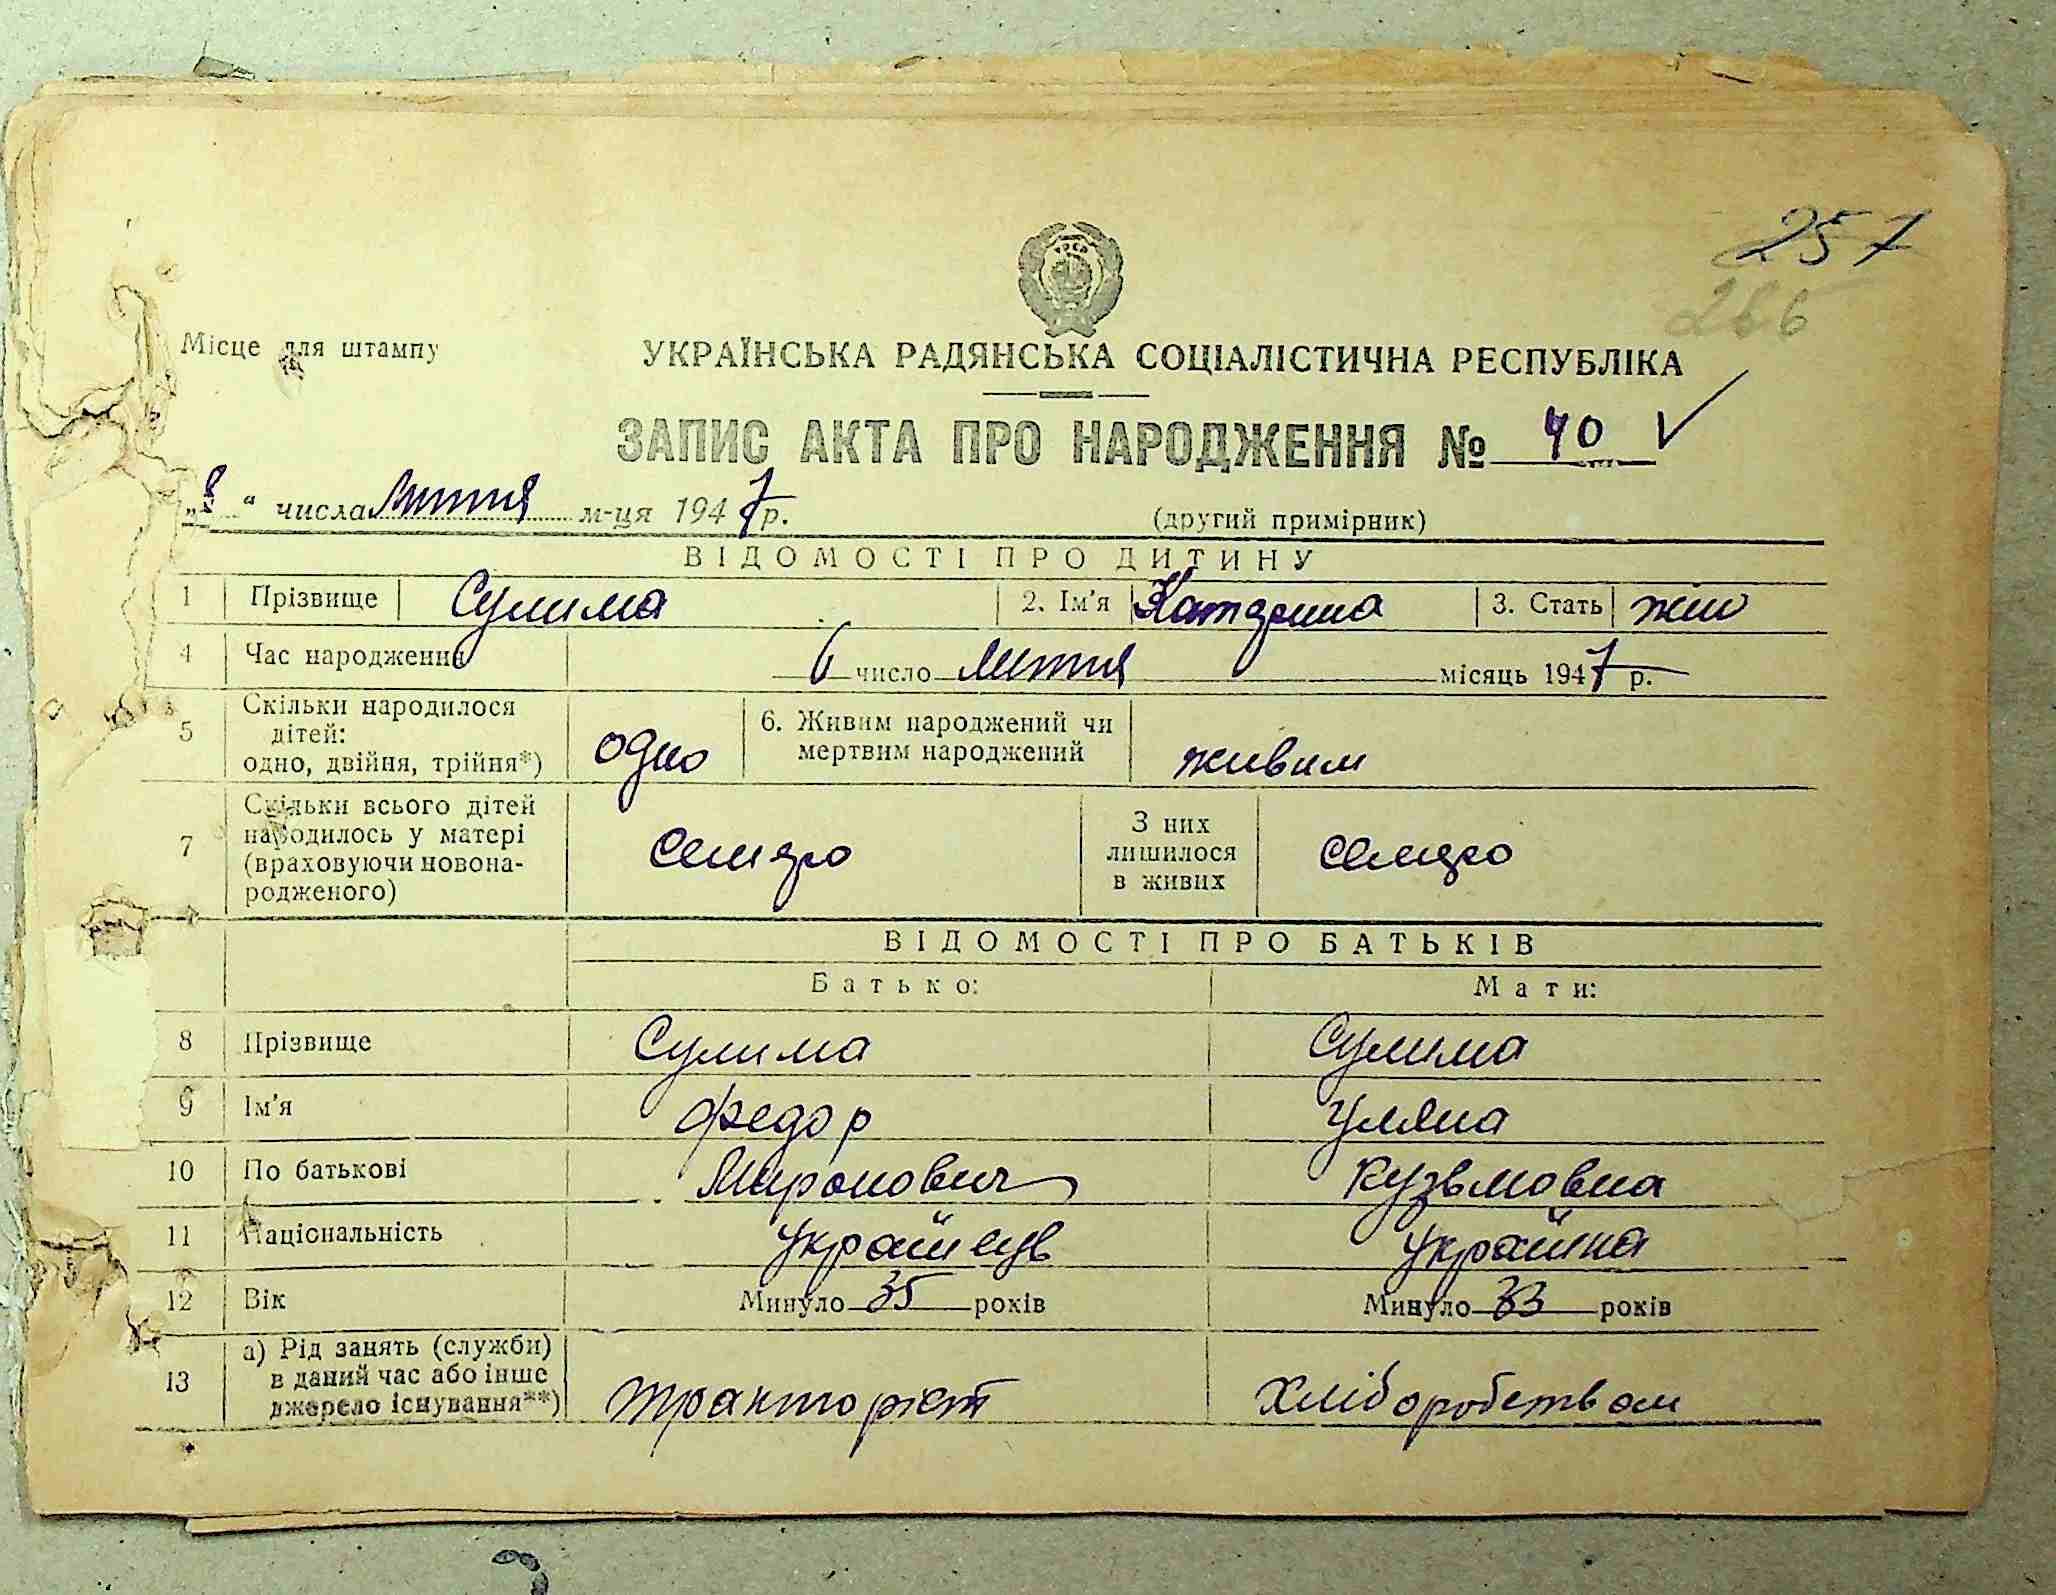 257
266
Місце для штампу
УКРАЇНСЬКА РАДЯНСЬКА СОЦІАЛІСТИЧНА РЕСПУБЛІКА
ЗАПИС АКТА ПРО НАРОДЖЕННЯ № 40
„8“ числа липня м-ця 1947 р.
(другий примірник)
ВІДОМОСТІ ПРО ДИТИНУ
1 Прізвище Сулима 2. Ім'я Катерина 3. Стать жін
4 Час народження 6 число липня місяць 1947 р.
5 Скільки народилося
дітей:
одно, двійня, трійня*) одно 6. Живим народжений чи
мертвим народжений живим
7 Скільки всього дітей
народилось у матері
(враховуючи новона-
родженого) семеро З них
лишилося
в живих семеро
ВІДОМОСТІ ПРО БАТЬКІВ
Батько: Мати:
8 Прізвище Сулима Сулима
9 Ім'я Федор Уляна
10 По батькові Миронович Кузьмовна
11 Національність українець українка
12 Вік Минуло 35 років Минуло 33 років
13 а) Рід занять (служби)
в даний час або інше
джерело існування**) тракторіст хліборобством